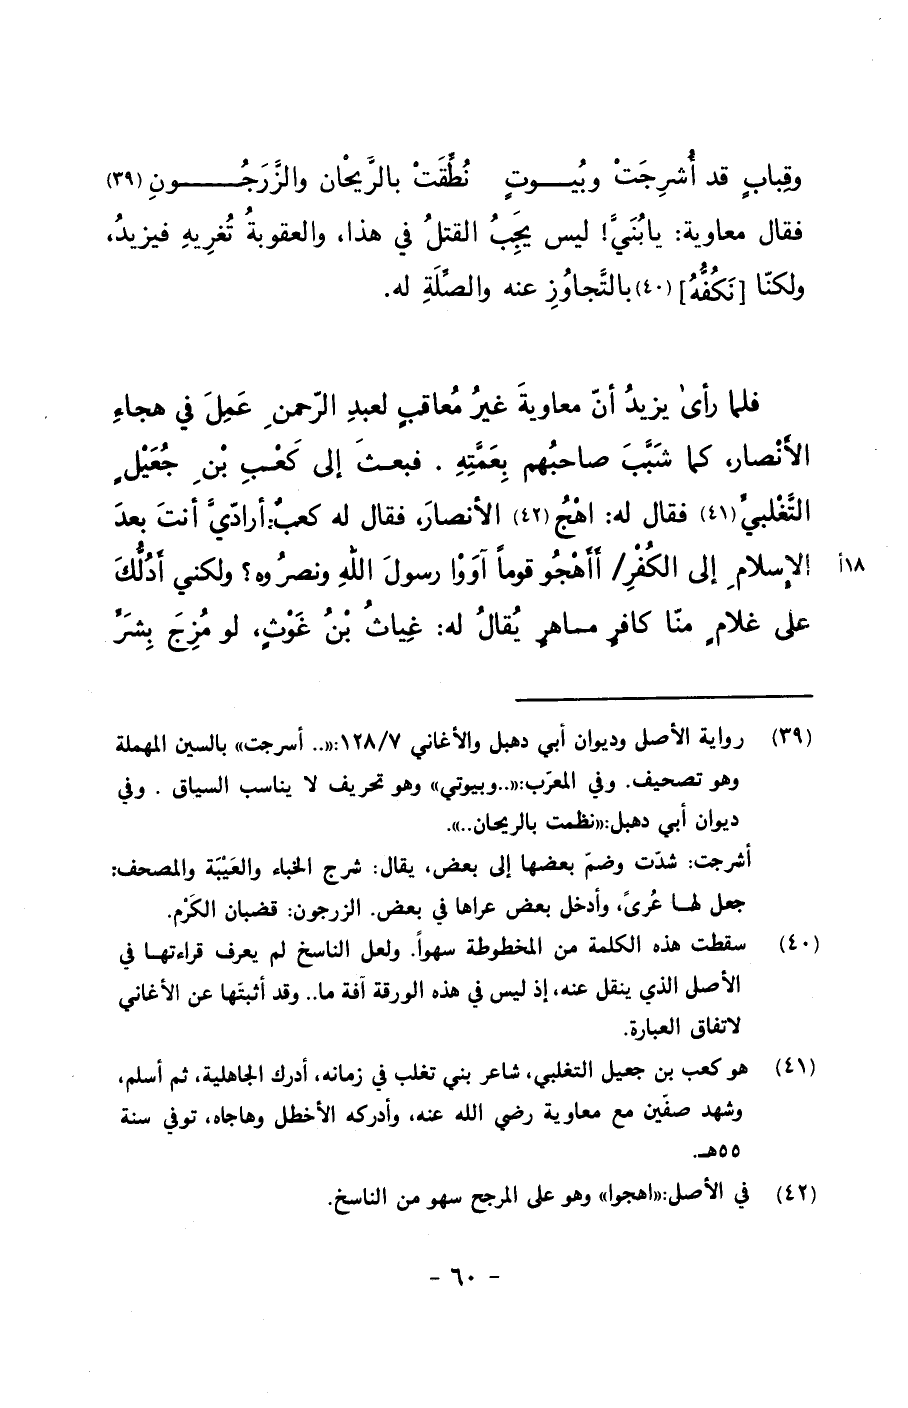 وقِبابٍ قد أُشرِجَتْ وبُيـــوتٍ نُطِّقَتْ بالرَّيحْان والزَّرَجُـــــونِ (٣٩)
فقال معاوية: يابُنَيَّ! ليس يَجِبُ القتلُ في هذا، والعقوبةُ تُغرِيهِ فيزيدُ،
ولكنّا [نَكُفُّهُ] (٤٠) بالتَّجاوُزِ عنه والصِّلَةِ له.
فلما رأىٰ يزيدُ أنّ معاويةَ غيرُ مُعاقبٍ لعبدِ الرّحمنِ عَمِلَ في هجاءِ
الأَنْصار، كما شَبَّبَ صاحبُهم بِعَمَّتِهِ . فبعـث إلى كَعْـبِ بْنِ جُعَيْلٍ
التَّغْلبيِّ (٤١) فقال له: اهْجُ (٤٢) الأنصارَ، فقال له كعبٌ: أرادّيَّ أنتَ بعدَ
الإِسلامِ إلى الكُفْرِ/ أَأَهْجُو قوماً آوَوْا رسولَ اللهِ ونصرُوه؟ ولكني أَدُلُّكَ ١٨أ
على غلامٍ منّا كافرٍ مـاهرٍ يُقالُ له: غِياثُ بْنُ غَوْثٍ، لو مُزِجَ بِشَرِّ
(٣٩) رواية الأصل وديوان أبي دهبل والأغاني ١٢٨/٧:«.. أسرجت» بالسين المهملة
وهو تصحيف. وفي المعرّب:«..وبيوتي» وهو تحريف لا يناسب السياق . وفي
ديوان أبي دهبل:«نظمت بالريحان..».
أشرجت: شدّت وضمّ بعضها إلى بعض، يقال: شرج الخباء والعَيْبَة والمصحف:
جعل لهـا عُرىً، وأدخل بعض عراها في بعض. الزرجون: قضبان الكَرْم.
(٤٠) سقطت هذه الكلمة من المخطوطة سهواً. ولعل الناسخ لم يعرف قراءتهـا في
الأصل الذي ينقل عنه، إذ ليس في هذه الورقة آفة ما.. وقد أثبتّها عن الأغاني
لاتفاق العبارة.
(٤١) هو كعب بن جعيل التغلبي، شاعر بني تغلب في زمانه، أدرك الجاهلية، ثم أسلم،
وشهد صفّين مع معاوية رضي الله عنه، وأدركه الأخطل وهاجاه، توفي سنة
٥٥هـ.
(٤٢) في الأصل:«اهجوا» وهو على المرجح سهو من الناسخ.
- ٦٠ -